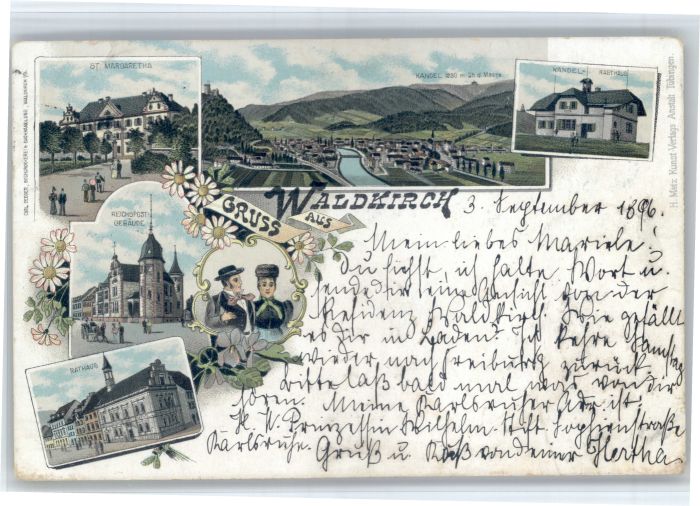 ST. MARGARETHA
KANDEL 1230 m üb. d. Meere
KANDEL-RASTHAUS
GRUSS AUS WALDKIRCH
REICHSPOST-
GEBÄUDE
RATHAUS
H. Metz Kunst-Verlags-Anstalt Tübingen
3. September 1896.
Mein liebes Mariele!
Du siehst, ich halte Wort u.
sende dir eine Ansicht von der
Residenz Waldkirch. Wie gefällt
es Dir in Baden. Ich kehre Samstag
wieder nach Freiburg zurück.
Bitte laß bald mal was von dir
hören. Meine Karlsruher Adr. ist
Prinzessin Wilhelm Stift Sophienstraße
Karlsruhe. Gruß u. Kuß von deiner Hertha